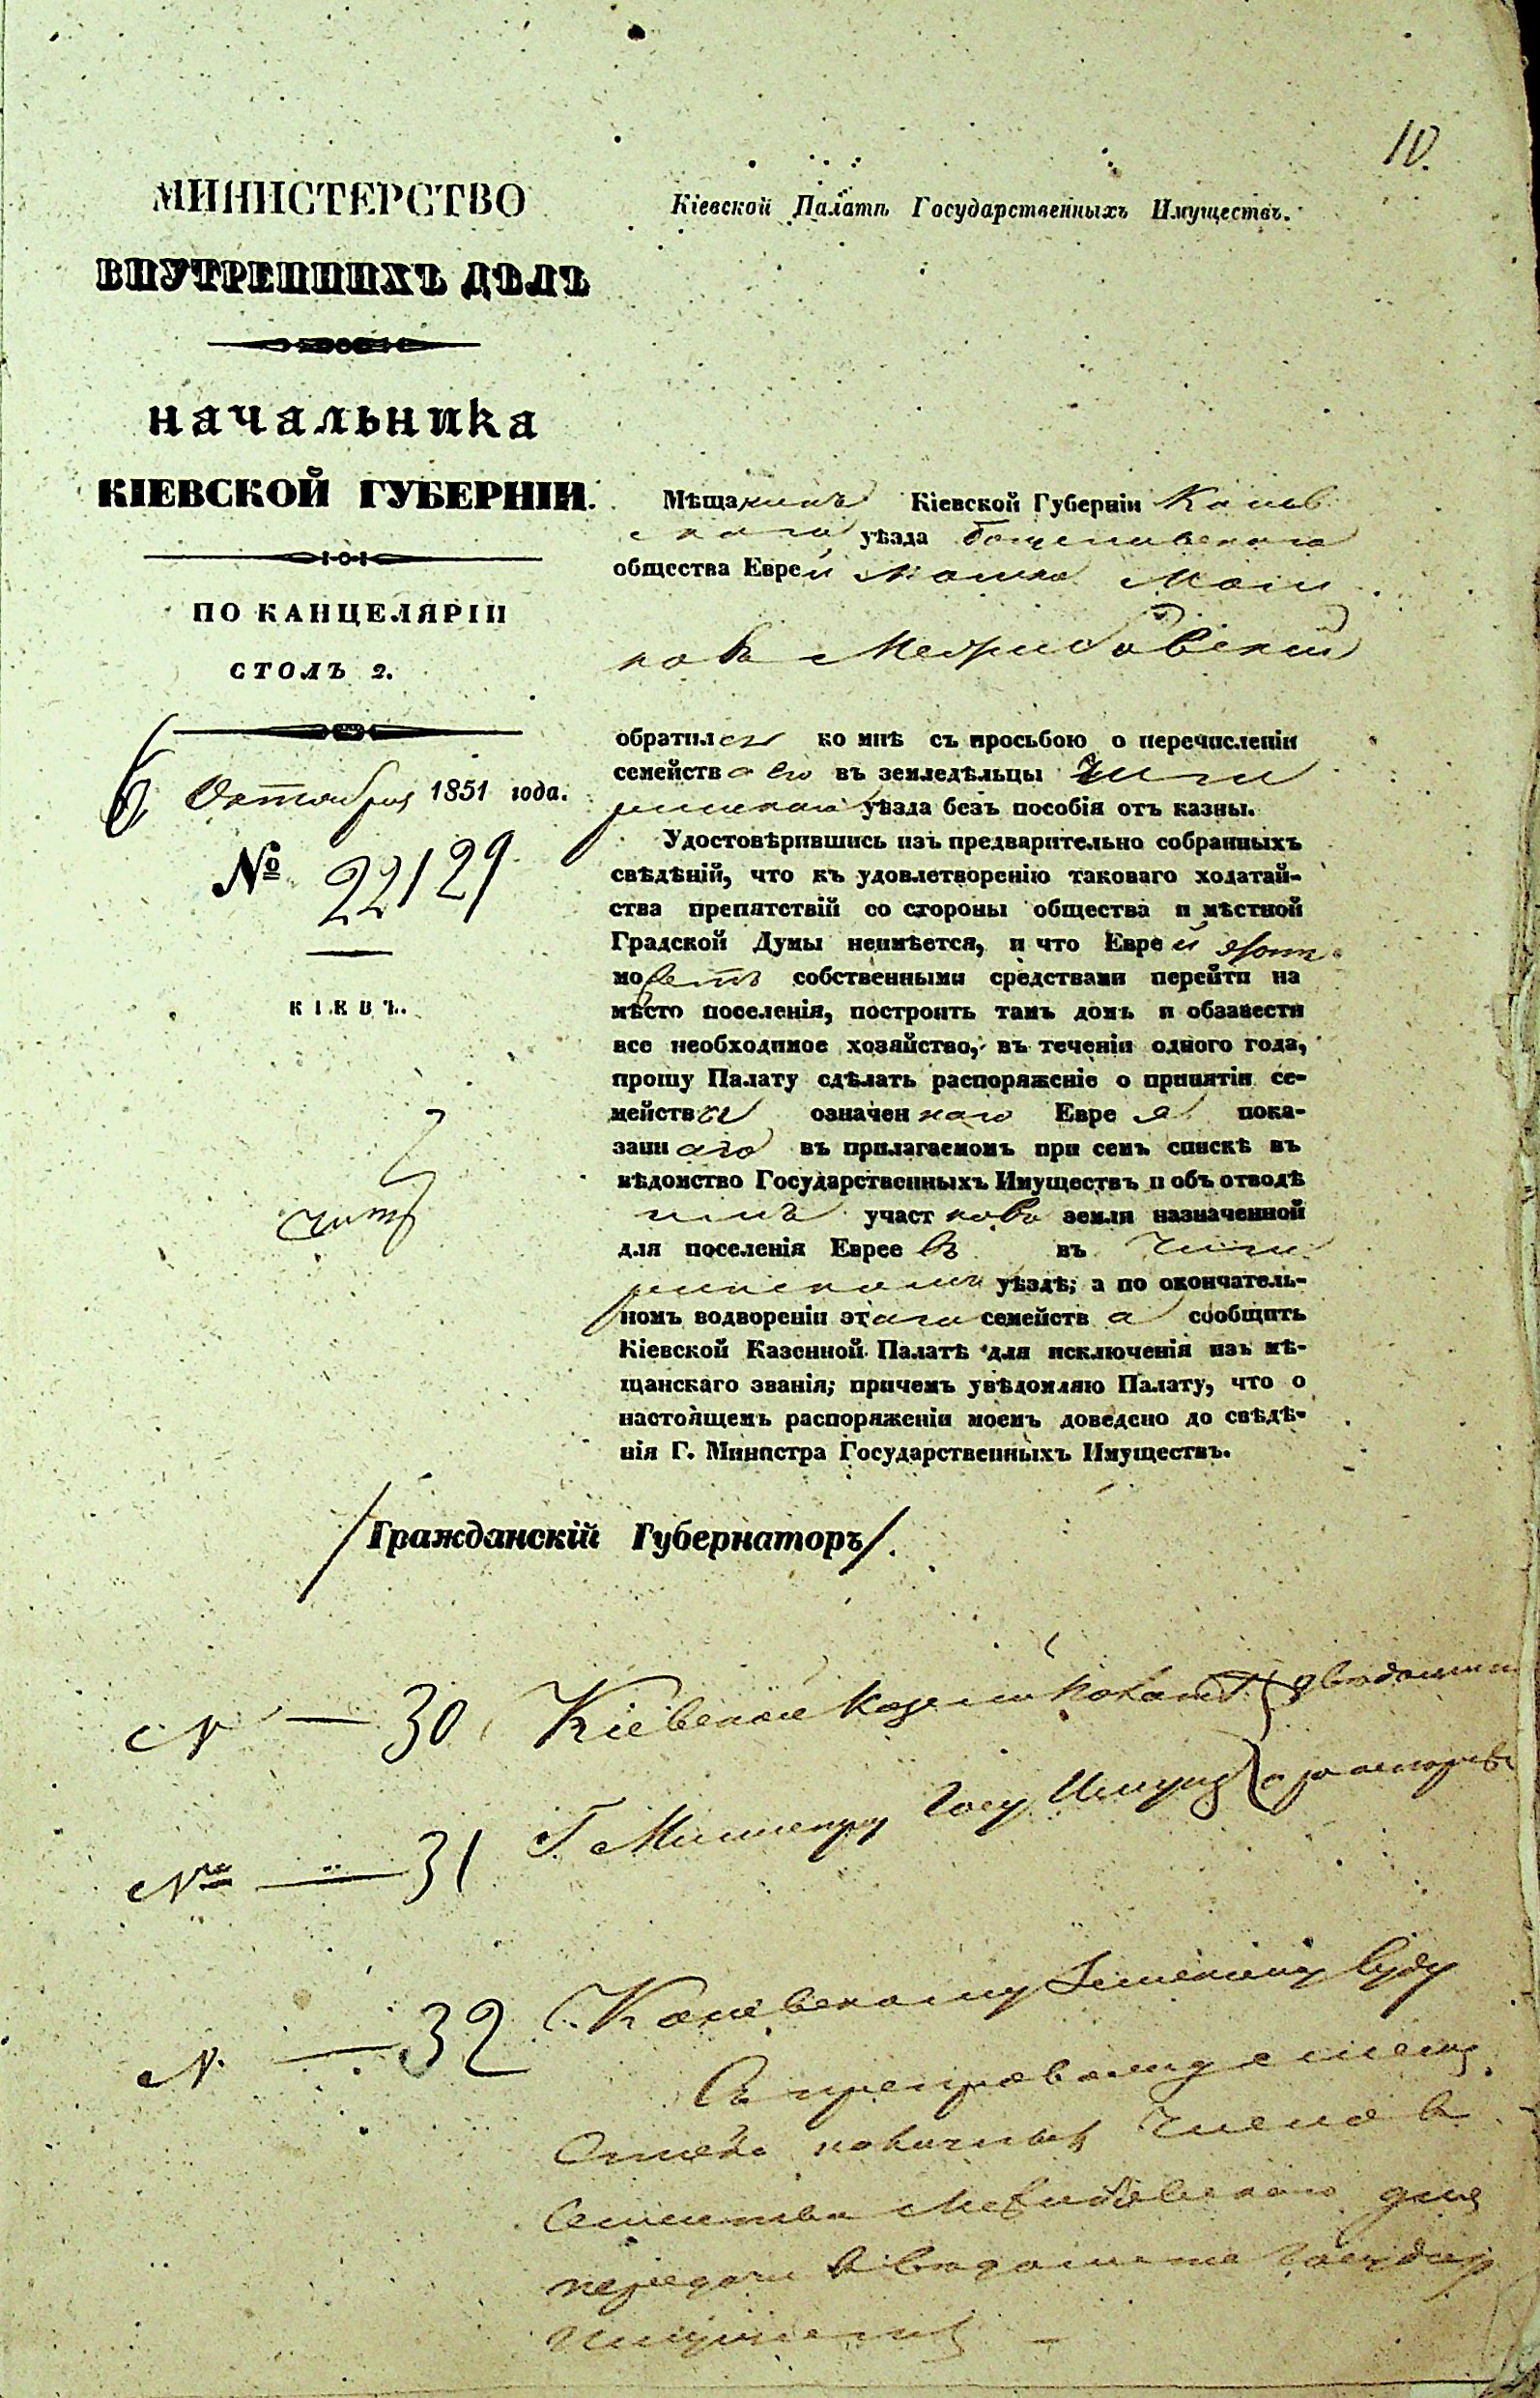 10.
МИНИСТЕРСТВО
ВНУТРЕННИХЪ ДѢЛЪ
НАЧАЛЬНИКА
КІЕВСКОЙ ГУБЕРНІИ.
ПО КАНЦЕЛЯРІИ
СТОЛЪ 2.
6 Октября 1851 года.
№ 22129
КІЕВЪ.
Кіевской Палатѣ Государственныхъ Имуществъ.
Мѣщанинъ Кіевской Губерніи Канев
скаго уѣзда
общества Еврей Мошко Мош
ков
обратился ко мнѣ съ просьбою о перечисленіи
семейства его въ земледѣльцы Чиги
ринскаго уѣзда безъ пособія отъ казны.
Удостовѣрившись изъ предварительно собранныхъ
свѣдѣній, что къ удовлетворенію таковаго ходатай-
ства препятствій со стороны общества и мѣстной
Градской Думы неимѣется, и что Еврей этотъ
можетъ собственными средствами перейти на
мѣсто поселенія, построить тамъ домъ и обзавести
все необходимое хозяйство, въ теченіи одного года,
прошу Палату сдѣлать распоряженіе о принятіи се-
мейства означеннаго Еврея пока-
заннаго въ прилагаемомъ при семъ спискѣ въ
вѣдомство Государственныхъ Имуществъ и объ отводѣ
имъ участковъ земли назначенной
для поселенія Евреевъ въ Чиги
ринскомъ уѣздѣ; а по окончатель-
номъ водвореніи этаго семейства сообщить
Кіевской Казенной Палатѣ для исключенія изъ мѣ-
щанскаго званія; причемъ увѣдомляю Палату, что о
настоящемъ распоряженіи моемъ доведено до свѣдѣ-
нія Г. Министра Государственныхъ Имуществъ.
/Гражданскій Губернаторъ/.
№ — 30 Кіевской Казен Палатѣ
№ — 31 Г Министру Госу Имущ
№ — 32 Каневскому Земскому Суду
Съ препровожд
Списка наличныхъ Членовъ
Семейства для
передачи въ вѣдомство Государ
Имуществъ —